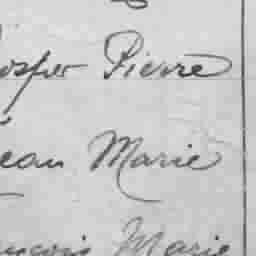 osper Pierre
ean Marie
ançois Marie